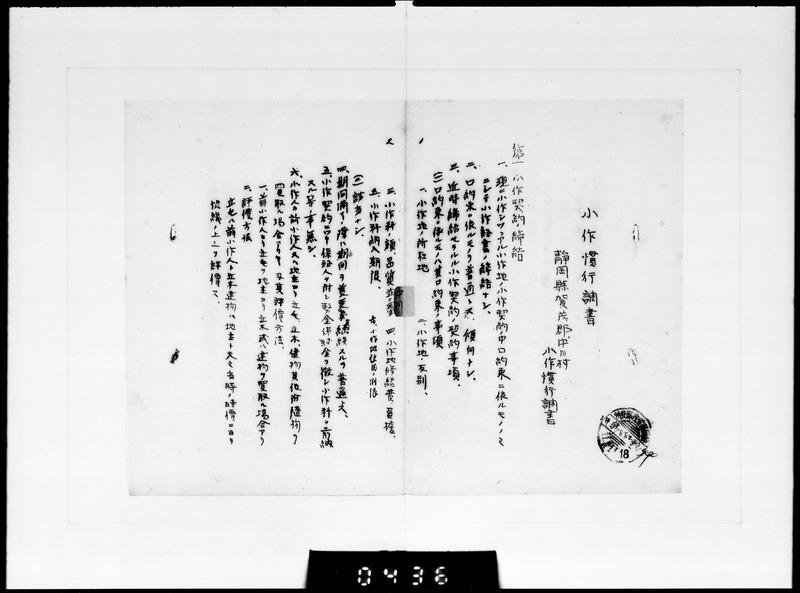 小作慣行調書
静岡縣賀茂郡中川村
小作慣行調書
第一 小作契約締結
一、現ニ小作シツツアル小作地ノ小作契約中口約束ニ依ルモノノミ
ニシテ小作證書ノ締結ナシ、
二、口約束ニ依ルモノヲ普通トス 傾向ナシ、
三、近時締結セラルル小作契約ノ契約事項、
(一)口約束ニ依ルモノハ其口約束ノ事項
一、小作地ノ所在地 二、小作地ノ反別、
三、小作料ノ額、品質 四、小作地修繕費負擔、
五、小作料納入期限、 六、小作地使用ノ制限
(二)該当ナシ、
四、期間満了ノ際ハ期間ヲ 更新継続スルヲ普通トス、
五、小作契約ニ当リ保証人ヲ附シ敷金保証金ヲ徴シ小作料ヲ前納
スル等ノ事無シ、
六、小作人ガ前小作人又ハ地主ヨリ立毛、立木、建物其他附随物ヲ
買取ル場合アリヤ及其評價方法、
一、前小作人ヨリ立毛ヲ地主ヨリ立木或ハ建物ヲ買取ル場合アリ
二、評價方法
立毛ハ前小作人ト立木建物ハ地主ト夫々当時ノ時價ニヨリ
協議ノ上ニテ評價ス、
18
0436